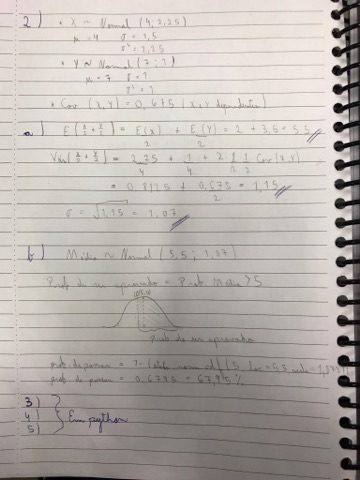 2) • X ~ Normal (4, 2,25)
μ = 4 σ = 1,5
σ² = 2,25
• Y ~ Normal (7; 1)
μ = 7 σ = 1
σ² = 1
• Cov (X,Y) = 0,675 (X e Y dependentes)
a) E[X/2 + Y/2] = E(X)/2 + E(Y)/2 = 2 + 3,5 = 5,5
Var[X/2 + Y/2] = 2,25/4 + 1/4 + 2 1/2 1/2 Cov(X,Y)
= 0,8125 + 0,675/2 = 1,15
σ = √1,15 = 1,07
b) Média ~ Normal (5,5; 1,07)
Prob de ser aprovado = Prob. Média > 5
Prob de ser aprovado
prob. de passar = 1 - (stats.norm.cdf(5, loc=5.5, scale=
prob. de passar = 0,6795 = 67,95%
3)
4) } Em python
5)